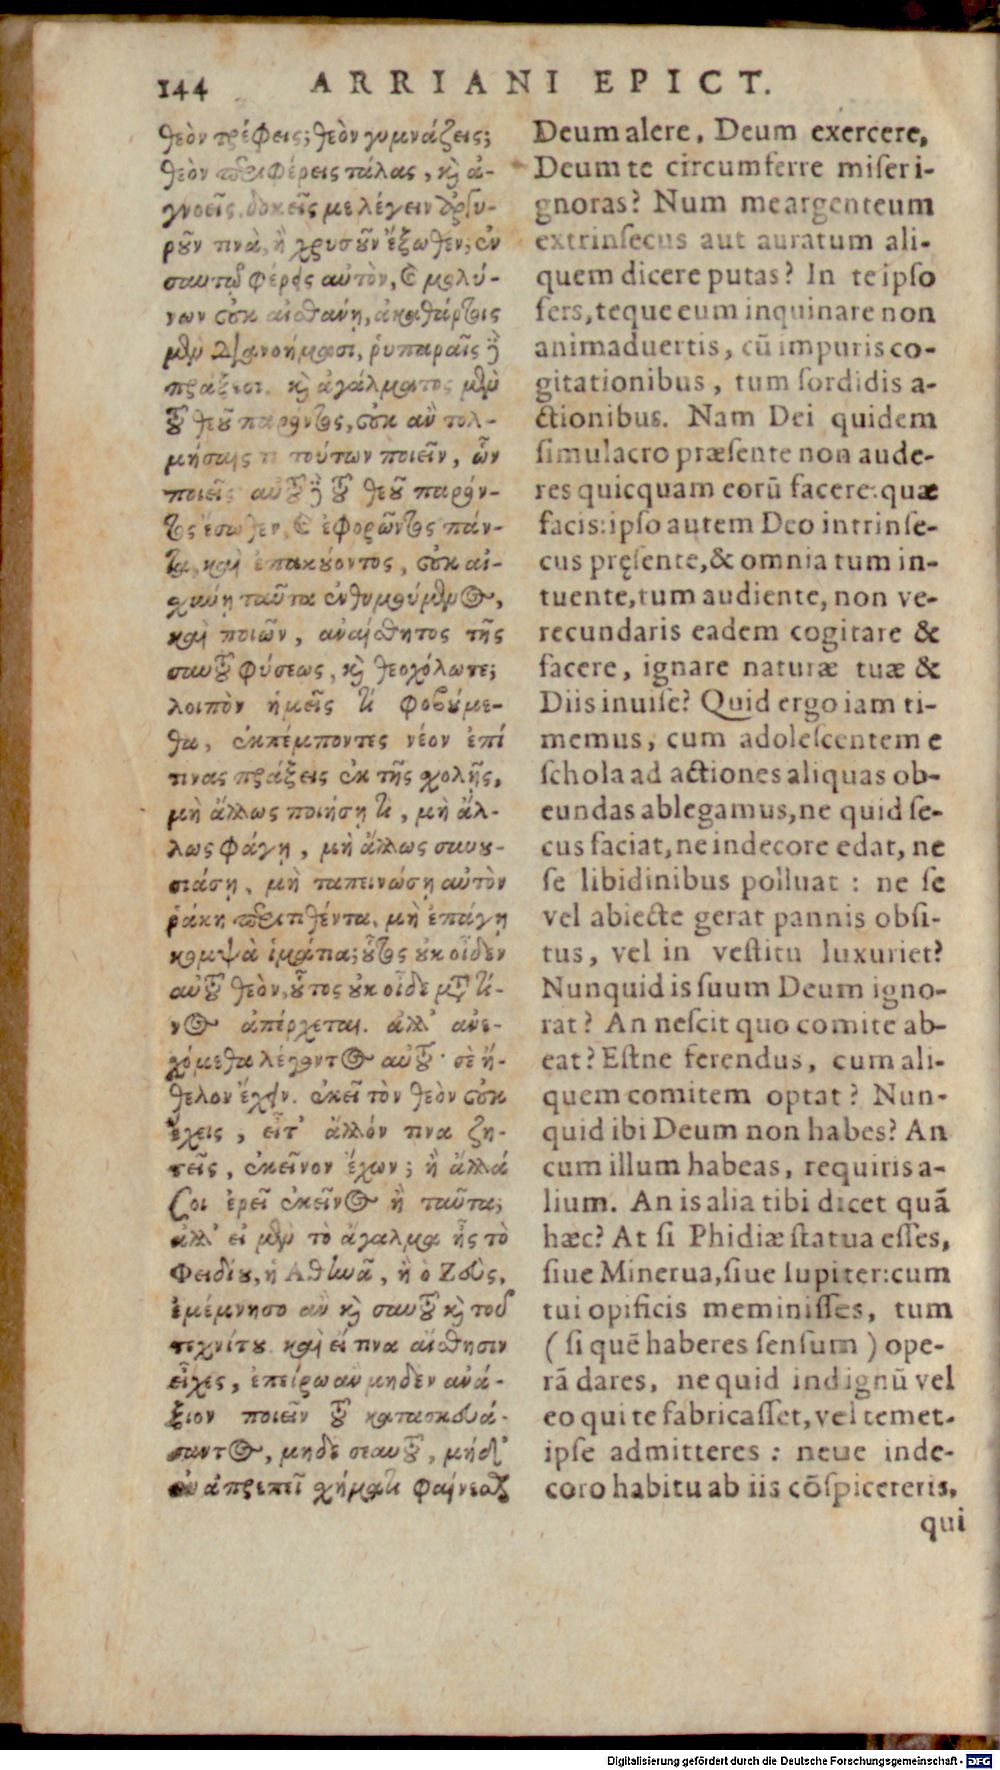 144 ARRIANI EPICT.
θεὸν τρέφεις; θεὸν γυμνάζεις;
θεὸν περιφέρεις τάλας, κὶ ἀ-
γνοεῖς. δοκεῖς με λέγειν ἀργυ-
ροῦν τινὰ, ἢ χρυσοῦν ἔξωθεν; ἐν
σαυτῷ φέρεις αὐτὸν, καὶ μολύ-
νων οὐκ αἰσθάνῃ, ἀκαθάρτοις
μὲν διανοήμασι, ῥυπαραῖς δὲ
πράξεσι. κὶ ἀγάλματος μὲν
τοῦ θεοῦ παρόντος, οὐκ ἂν τολ-
μήσαις τι τούτων ποιεῖν, ὧν
ποιεῖς· αὐτοῦ δὲ τοῦ θεοῦ παρόν-
τος ἔσωθεν, καὶ ἐφορῶντος πάν-
τα, καὶ ἐπακούοντος, οὐκ αἰ-
σχύνῃ ταῦτα ἐνθυμούμενος,
καὶ ποιῶν, ἀναίσθητος τῆς
σαυτοῦ φύσεως, κὶ θεοχόλωτε;
λοιπὸν ἡμεῖς τί φοβούμε-
θα, ἐκπέμποντες νέον ἐπί
τινας πράξεις ἐκ τῆς σχολῆς,
μὴ ἄλλως ποιήσῃ τι, μὴ ἄλ-
λως φάγῃ, μὴ ἄλλως συνου-
σιάσῃ, μὴ ταπεινώσῃ αὐτὸν
ῥάκη περιτιθέντα, μὴ ἐπάγῃ
κομψὰ ἱμάτια; οὗτος οὐκ οἶδεν
αὐτοῦ θεὸν, οὗτος οὐκ οἶδε μετὰ τί-
νος ἀπέρχεται. ἀλλ' ἀνε-
χόμεθα λέγοντος αὐτοῦ· σὲ ἤ-
θελον ἔχειν. ἐκεῖ τὸν θεὸν οὐκ
ἔχεις, εἶτ' ἄλλόν τινα ζη-
τεῖς, ἐκεῖνον ἔχων; ἢ ἄλλά
σοι ἐρεῖ ἐκεῖνος ἢ ταῦτα;
ἀλλ' εἰ μὲν τὸ ἄγαλμα ἦς τὸ
Φειδίου, ἡ Ἀθηνᾶ, ἢ ὁ Ζεὺς,
ἐμέμνησο ἂν κὶ σαυτοῦ κὶ τοῦ
τεχνίτου καὶ εἴ τινα αἴσθησιν
εἶχες, ἐπειρῶ ἂν μηδὲν ἀνά-
ξιον ποιεῖν τοῦ κατασκευά-
σαντος, μηδὲ σεαυτοῦ, μήδ'
ἐν ἀπρεπεῖ σχήματι φαίνεσθαι
Deum alere, Deum exercere,
Deum te circumferre miser i-
gnoras? Num me argenteum
extrinsecus aut auratum ali-
quem dicere putas? In te ipso
fers, teque eum inquinare non
animaduertis, cū impuris co-
gitationibus, tum sordidis a-
ctionibus. Nam Dei quidem
simulacro præsente non aude-
res quicquam eorū facere quæ
facis: ipso autem Deo intrinse-
cus pręsente, & omnia tum in-
tuente, tum audiente, non ve-
recundaris eadem cogitare &
facere, ignare naturæ tuæ &
Diis inuise? Quid ergo iam ti-
memus, cum adolescentem e
schola ad actiones aliquas ob-
eundas ablegamus, ne quid se-
cus faciat, ne indecore edat, ne
se libidinibus polluat: ne se
vel abiecte gerat pannis obsi-
tus, vel in vestitu luxuriet?
Nunquid is suum Deum igno-
rat? An nescit quo comite ab-
eat? Estne ferendus, cum ali-
quem comitem optat? Nun-
quid ibi Deum non habes? An
cum illum habeas, requiris a-
lium. An is alia tibi dicet quā
hæc? At si Phidiæ statua esses,
siue Minerua, siue Iupiter: cum
tui opificis meminisses, tum
(si quē haberes sensum) ope-
rā dares, ne quid indignū vel
eo qui te fabricasset, vel temet-
ipse admitteres: neue inde-
coro habitu ab iis cōspicereris,
qui
Digitalisierung gefördert durch die Deutsche Forschungsgemeinschaft - DFG